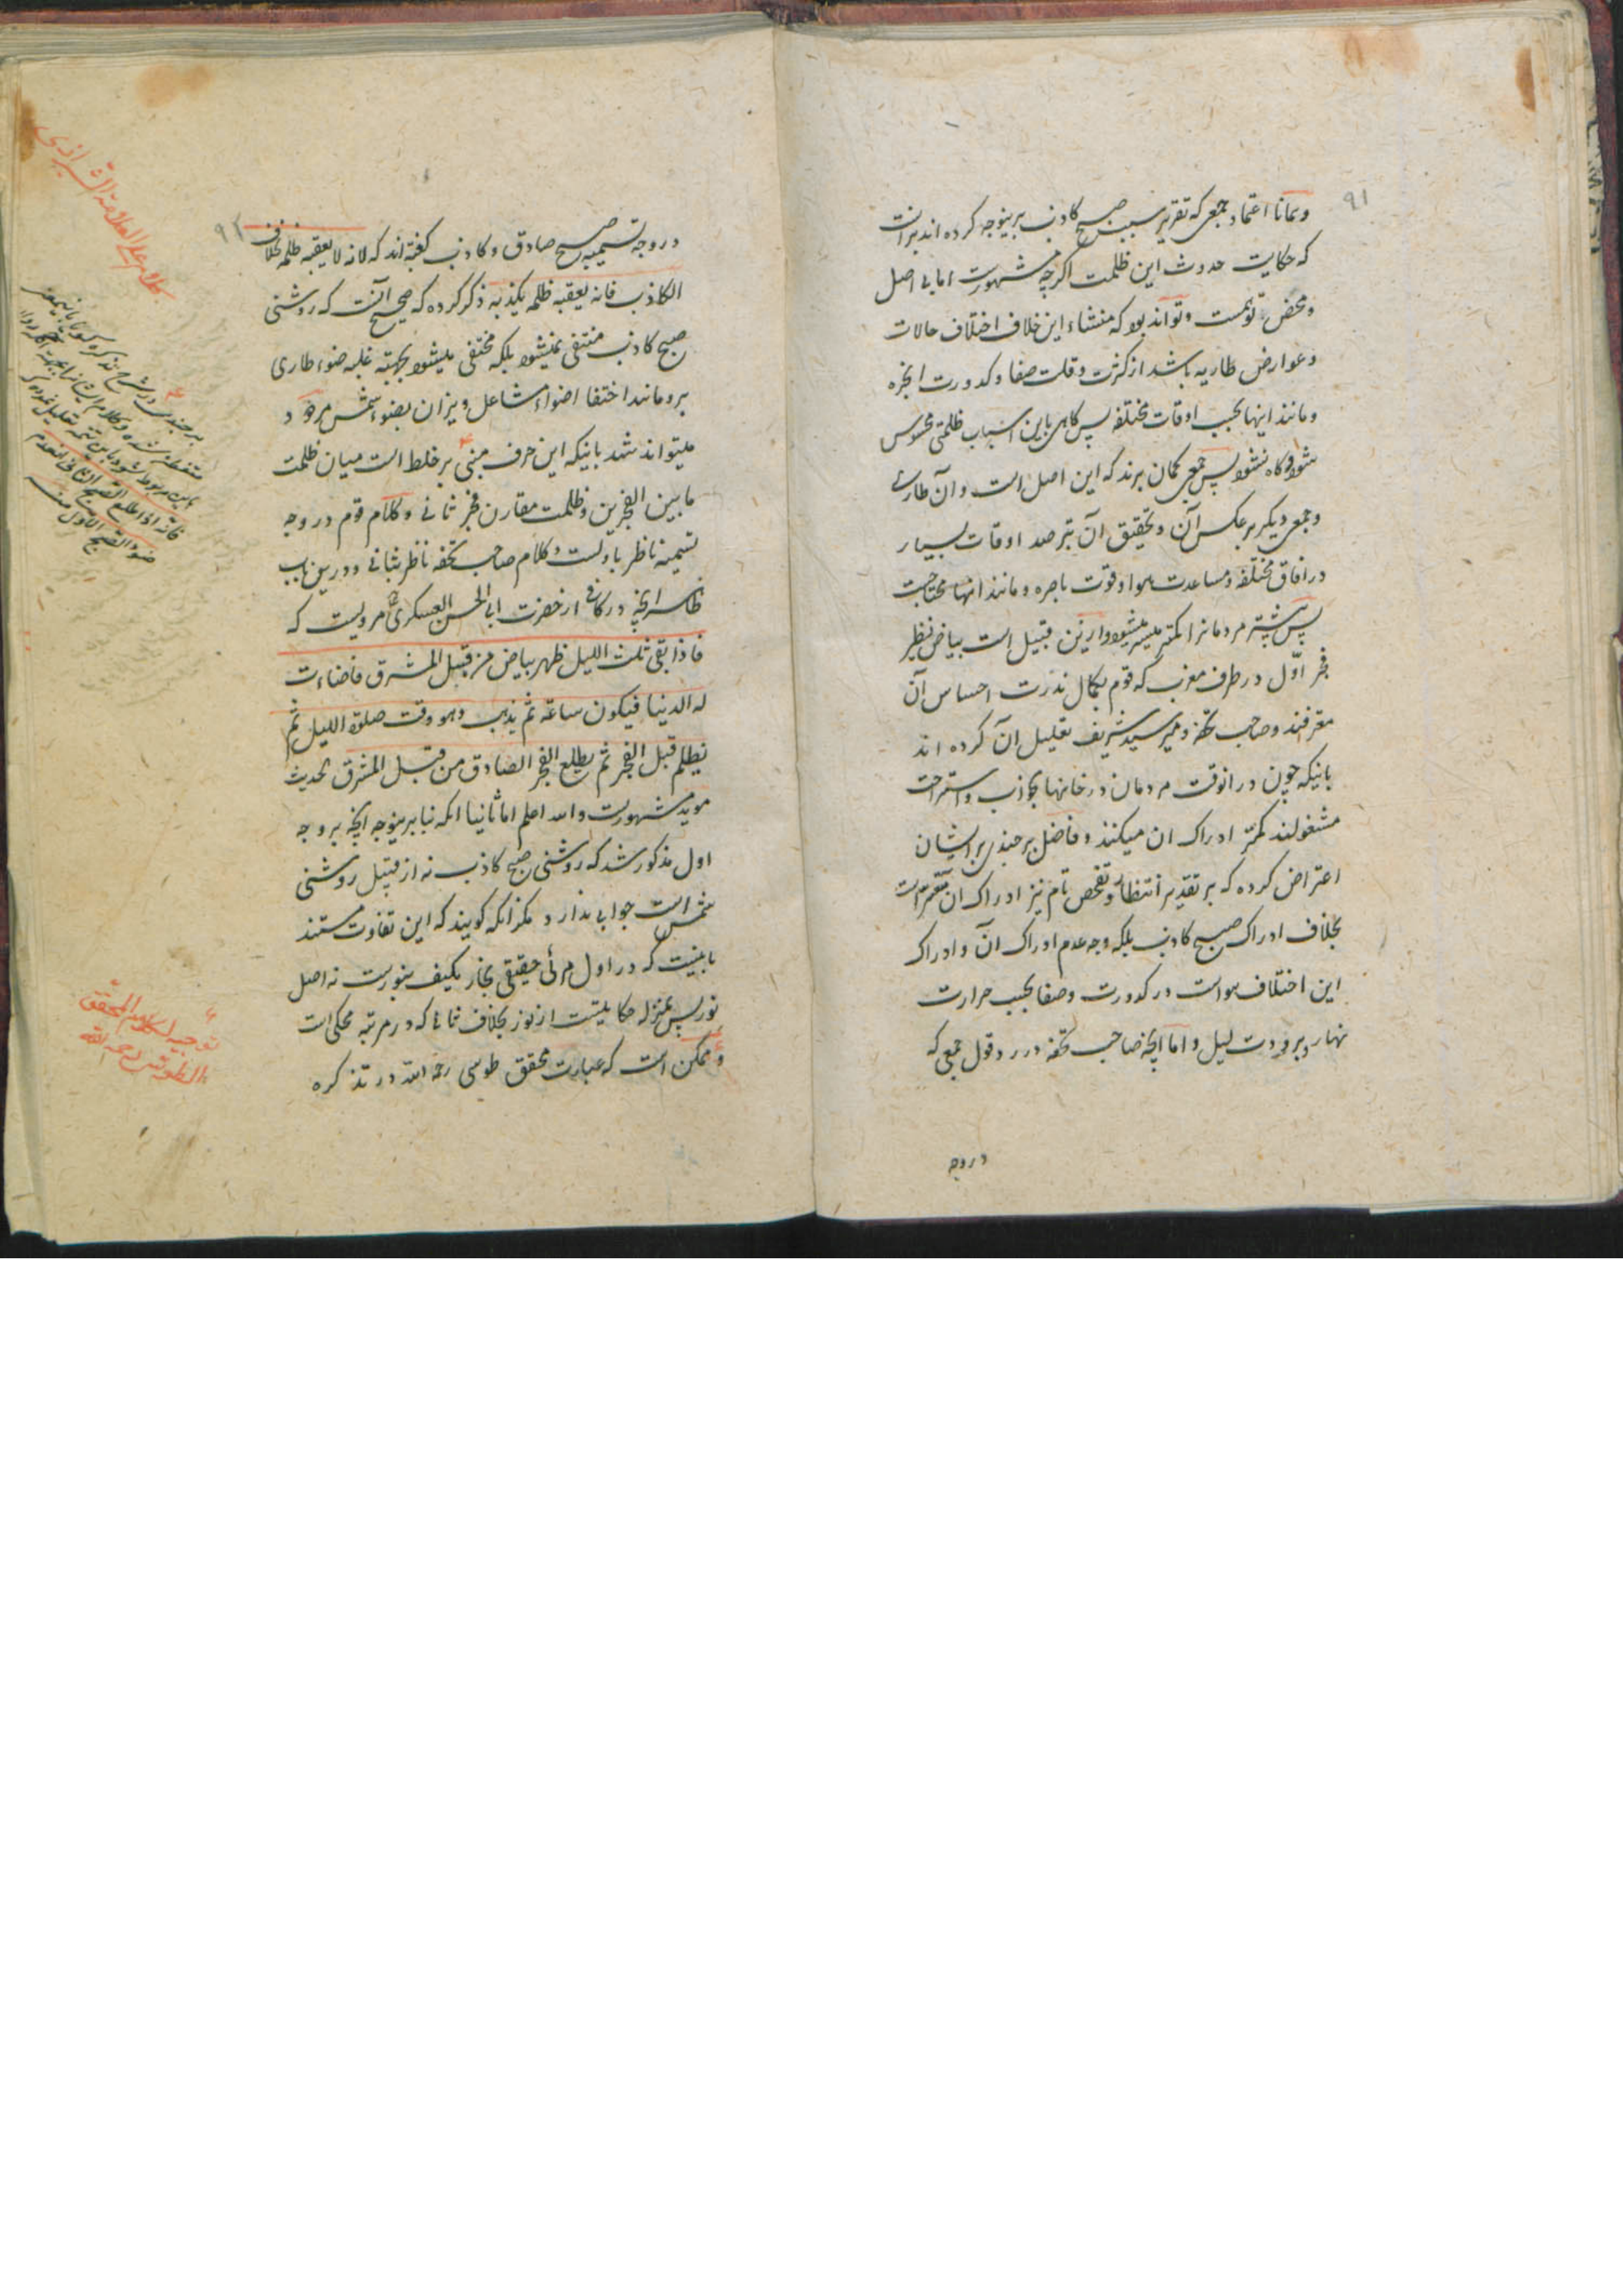 ۹۱
و همانا اعتماد جمعی که تقریر سبب صبح کاذب برینوجه کرده اند برانست
که حکایت حدوث این ظلمت اکرچه مشهورست اما بی اصل
و محض توهمست و تواند بود که منشاء این خلاف اختلاف حالات
و عوارض طاریه باشد از کثرت و قلت صفا و کدورت ابخره
و مانند اینها بحسب اوقات مختلفه پس کاهی باین اسباب ظلمتی محسوس
شود و کاه نشود پس جمعی کمان برند که این اصل است و آن طاری
و جمعی دیکر بر عکس آن و تحقیق آن بترصد اوقات بسیار
در افاق مختلفه و مساعدت هوا و قوت باصره و مانند انها محتاجست
پس بیشتر مردمانرا کمتر میسر میشود و ازین قبیل است بیاض نظیر
فجر اول در طرف مغرب که قوم بکمال ندرت احساس آن
معترفند و صاحب تحفه و میر سید شریف تعلیل آن کرده اند
بانیکه چون در انوقت مردمان در خانها بخواب و استراحت
مشغولند کمتر ادراک ان میکنند و فاضل برجندی بر ایشان
اعتراض کرده که بر تقدیر انتظار و تفحص تام نیز ادراک ان متعسر است
بخلاف ادراک صبح کاذب بلکه وجه عدم ادراک آن و ادراک
این اختلاف هواست در کدورت و صفا بحسب حرارت
نهار و برودت لیل و اما آنچه صاحب تحفه در رد قول جمعی که
در وجه
۹۲
در وجه تسمیه صبح صادق و کاذب کفته اند که لانه لا یعقبه ظلمه بخلاف
الکاذب فانه یعقبه ظلمه یکذبه ذکر کرده که صحیح آنست که روشنی
صبح کاذب منتفی نمیشود بلکه مختفی میشود بجهته غلبه ضوء طاری
برو مانند اختفا اضواء مشاعل و نیران بضوء شمس مردود
میتواند شد بانیکه این حرف مبنی بر خلط است میان ظلمت
ما بین الفجرین و ظلمت مقارن فجر ثانی و کلام قوم در وجه
تسمیه ناظر باولست و کلام صاحب تحفه ناظر بثانی و درین باب
ظاهر آنچه در کافی از حضرت ابی الحسن العسکری مرویست که
فاذا بقی ثلث اللیل ظهر بیاض من قبل المشرق فاضاءت
له الدنیا فیکون ساعة ثم یذهب وهو وقت صلوة اللیل ثم
یظلم قبل الفجر ثم یطلع الفجر الصادق من قبل المشرق الحدیث
موید مشهورست والله اعلم اما ثانیا انکه بنا برینوجه آنچه بر وجه
اول مذکور شد که روشنی صبح کاذب نه از قبیل روشنی
شمس است جوابی ندارد مکر انکه کویند که این تفاوت مستند
بانیست که در اول مرئی حقیقی بخار مکیف بنورست نه اصل
نور پس بمنزله حکایتیست از نور بخلاف ثانی که در مرتبه محکی است
و ممکن است که عبارت محقق طوسی رحمه الله در تذکره
کلام علی العلامة الشیرازی
برجندی در شرح تذکره کویا باین معنی
متفطن شده و کلام ایشانرا
فانه اذا طلع الصبح الثانی انعدم
ضوء الصبح الاول منه
توجیه لکلام المحقق
الطوسی رحمه الله